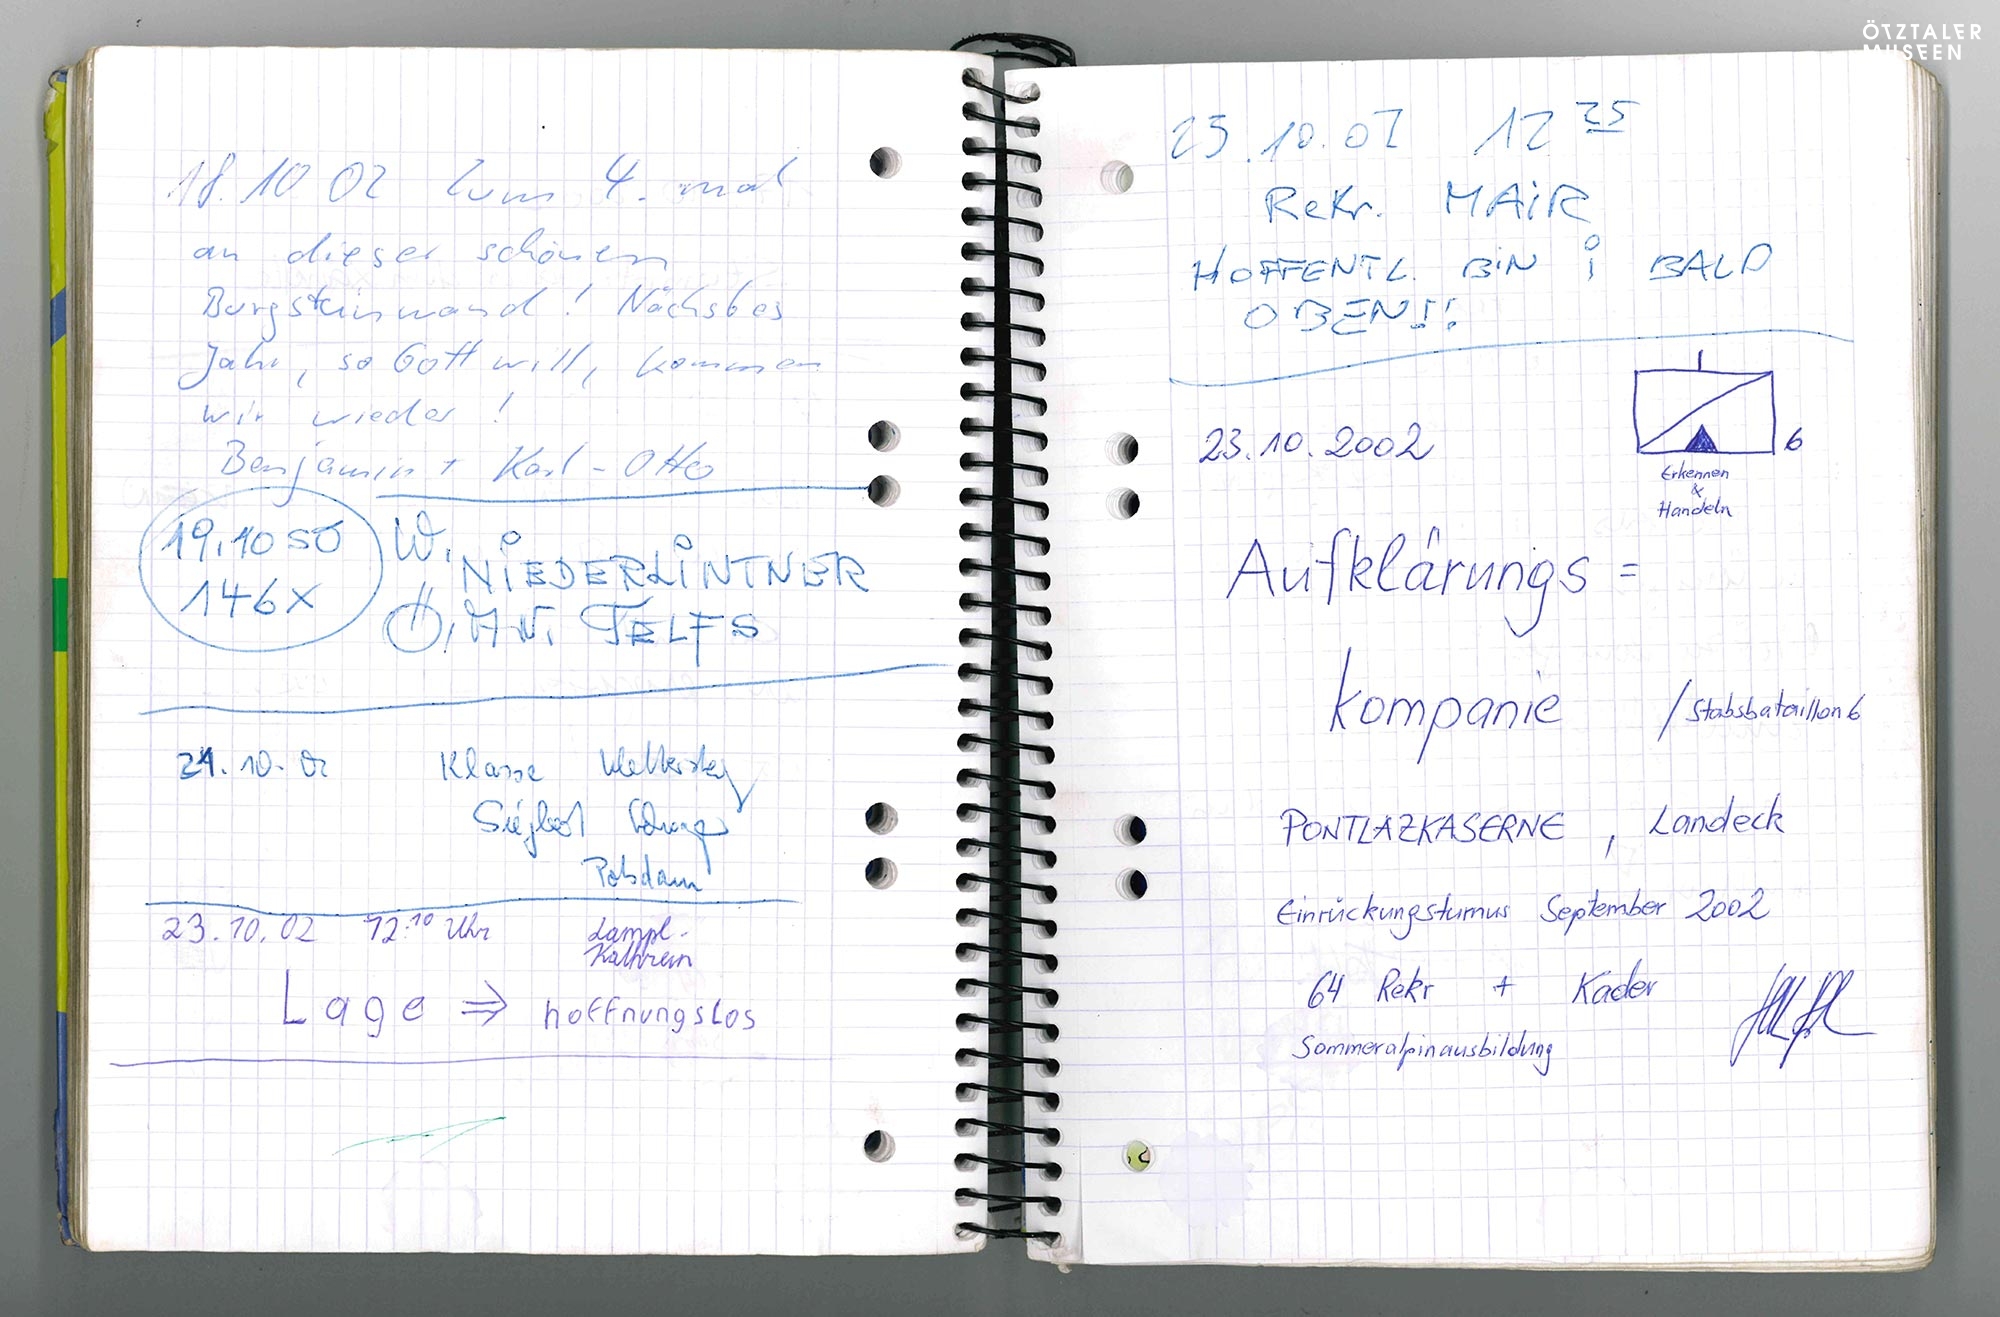 ÖTZTALER
MUSEEN
18.10 02 Zum 4. mal
an dieser schönen
Burgsteinwand! Nächstes
Jahr, so Gott will, kommen
wir wieder!
Benjamin + Karl-Otto
19.10 SO
146X
W. NIEDERLINTNER
Ö.A.V. TELFS
21.10.02 Klasse Klettersteig
Potsdam
23.10.02 12:10 Uhr Lampl-
Kathrein
Lage ⇒ hoffnungslos
23.10.02 12 25
Rekr. MAIR
HOFFENTL. BIN i BALD
OBEN!!
23.10.2002
6
Erkennen
&
Handeln
Aufklärungs=
kompanie /Stabsbataillon 6
PONTLAZKASERNE, Landeck
Einrückungsturnus September 2002
64 Rekr + Kader
Sommeralpinausbildung